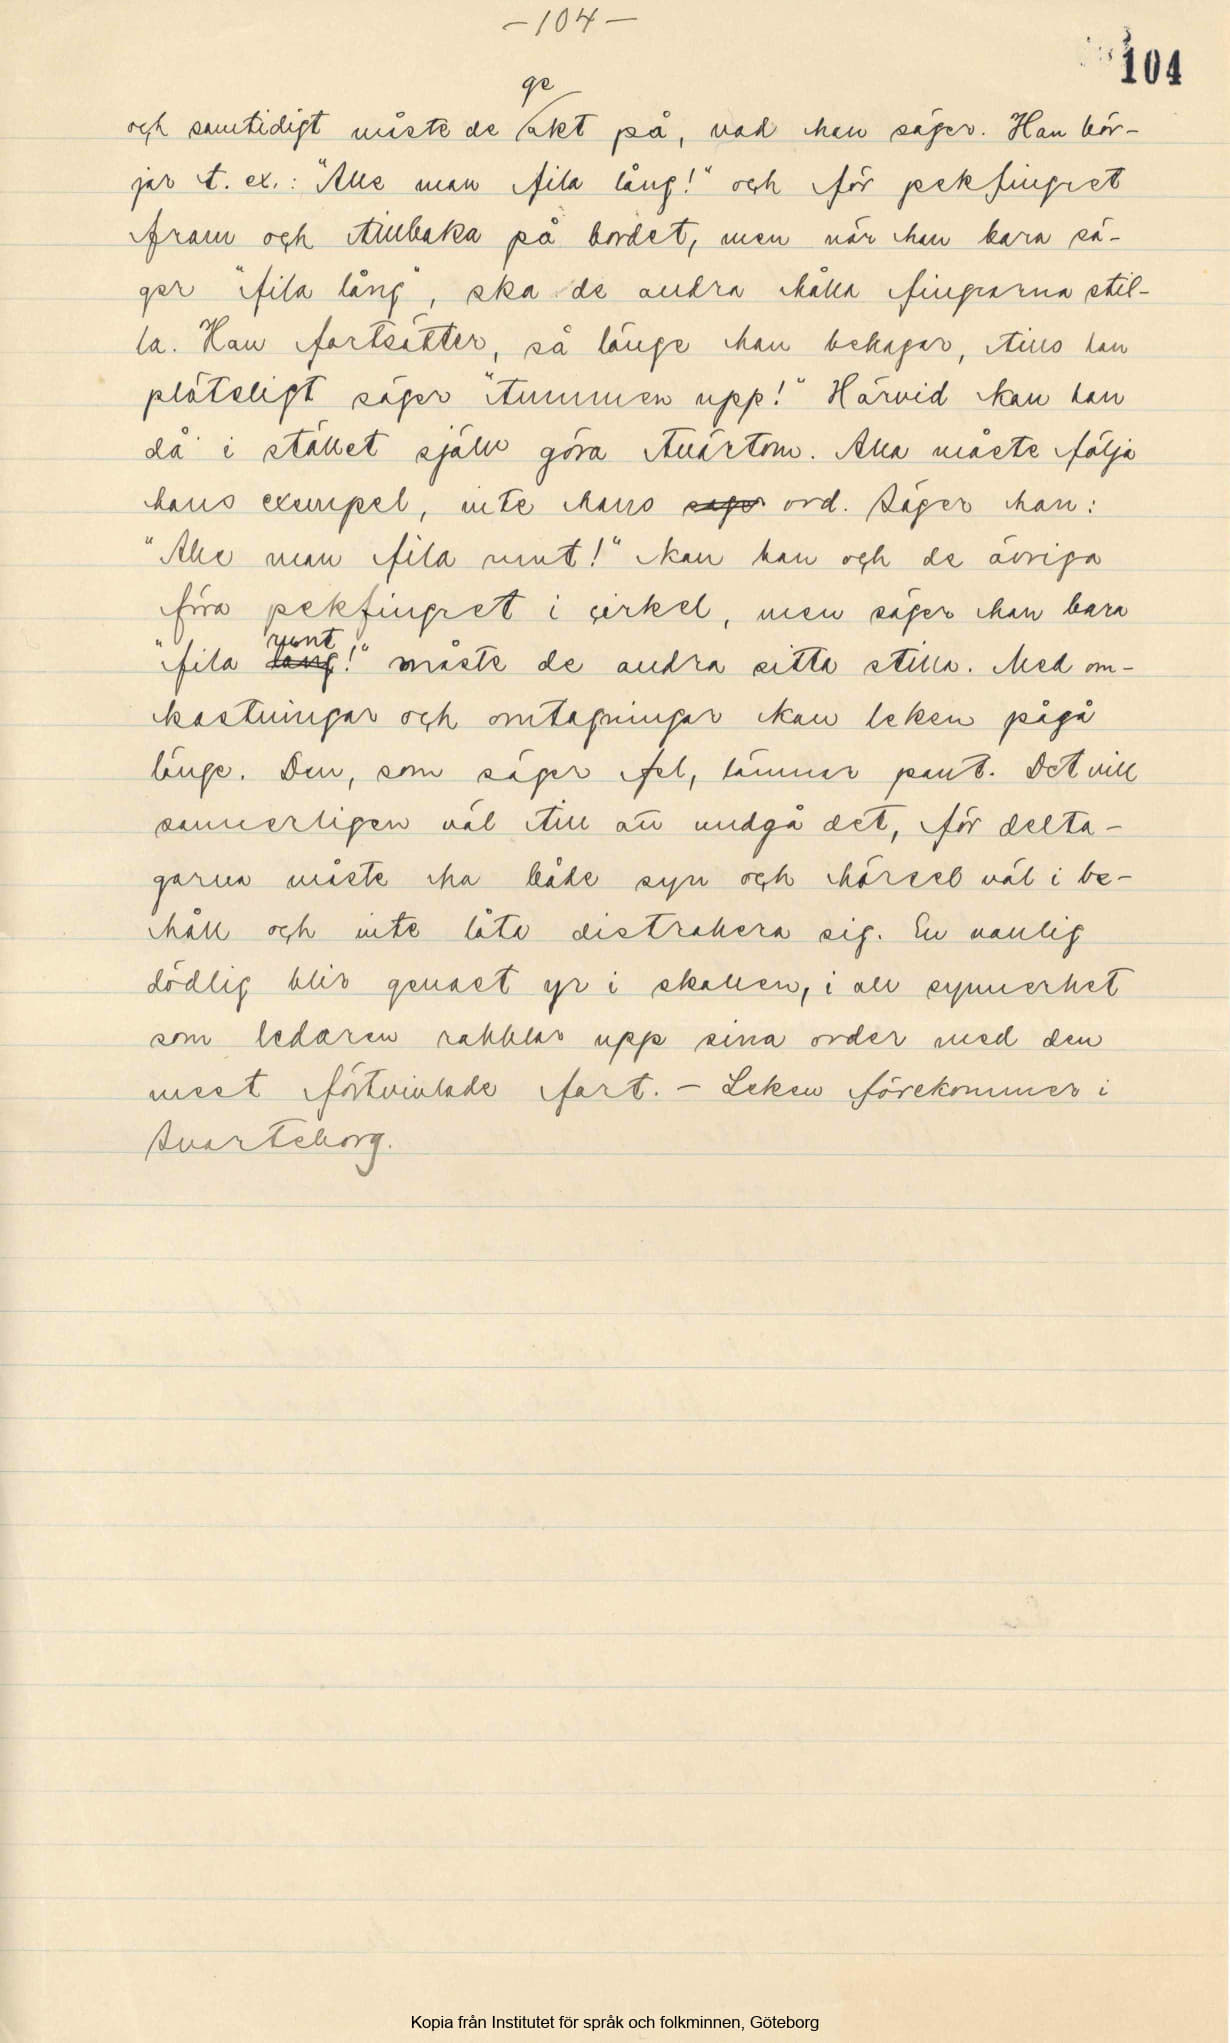 - 104 -
104
ge
och samtidigt måste de akt på, vad han säger. Han bör-
jar t. ex.: "Alle man fila lång!" och för pekfingret
fram och tillbaka på bordet, men när han bara sä-
ger "fila lång", ska de andra hålla fingrarna stil-
la. Han fortsätter, så länge han behagar, tills han
plötsligt säger "tummen upp!" Härvid kan han
då i stället själv göra tvärtom. Alla måste följa
hans exempel, inte hans ord. Säger han:
"Alle man fila runt!" kan han och de övriga
föra pekfingret i cirkel, men säger han bara
runt
"fila lång!" måste de andra sitta stilla. Med om-
kastningar och omtagningar kan leken pågå
länge. Den, som säger fel, lämnar pant. Det vill
sannerligen väl till att undgå det, för delta-
garna måste ha både syn och hörsel väl i be-
håll och inte låta distrahera sig. En vanlig
dödlig blir genast yr i skallen, i all synnerhet
som ledaren rabblar upp sina order med den
mest förtvivlade fart. - Leken förekommer i
Svarteborg.
Kopia från Institutet för språk och folkminnen, Göteborg